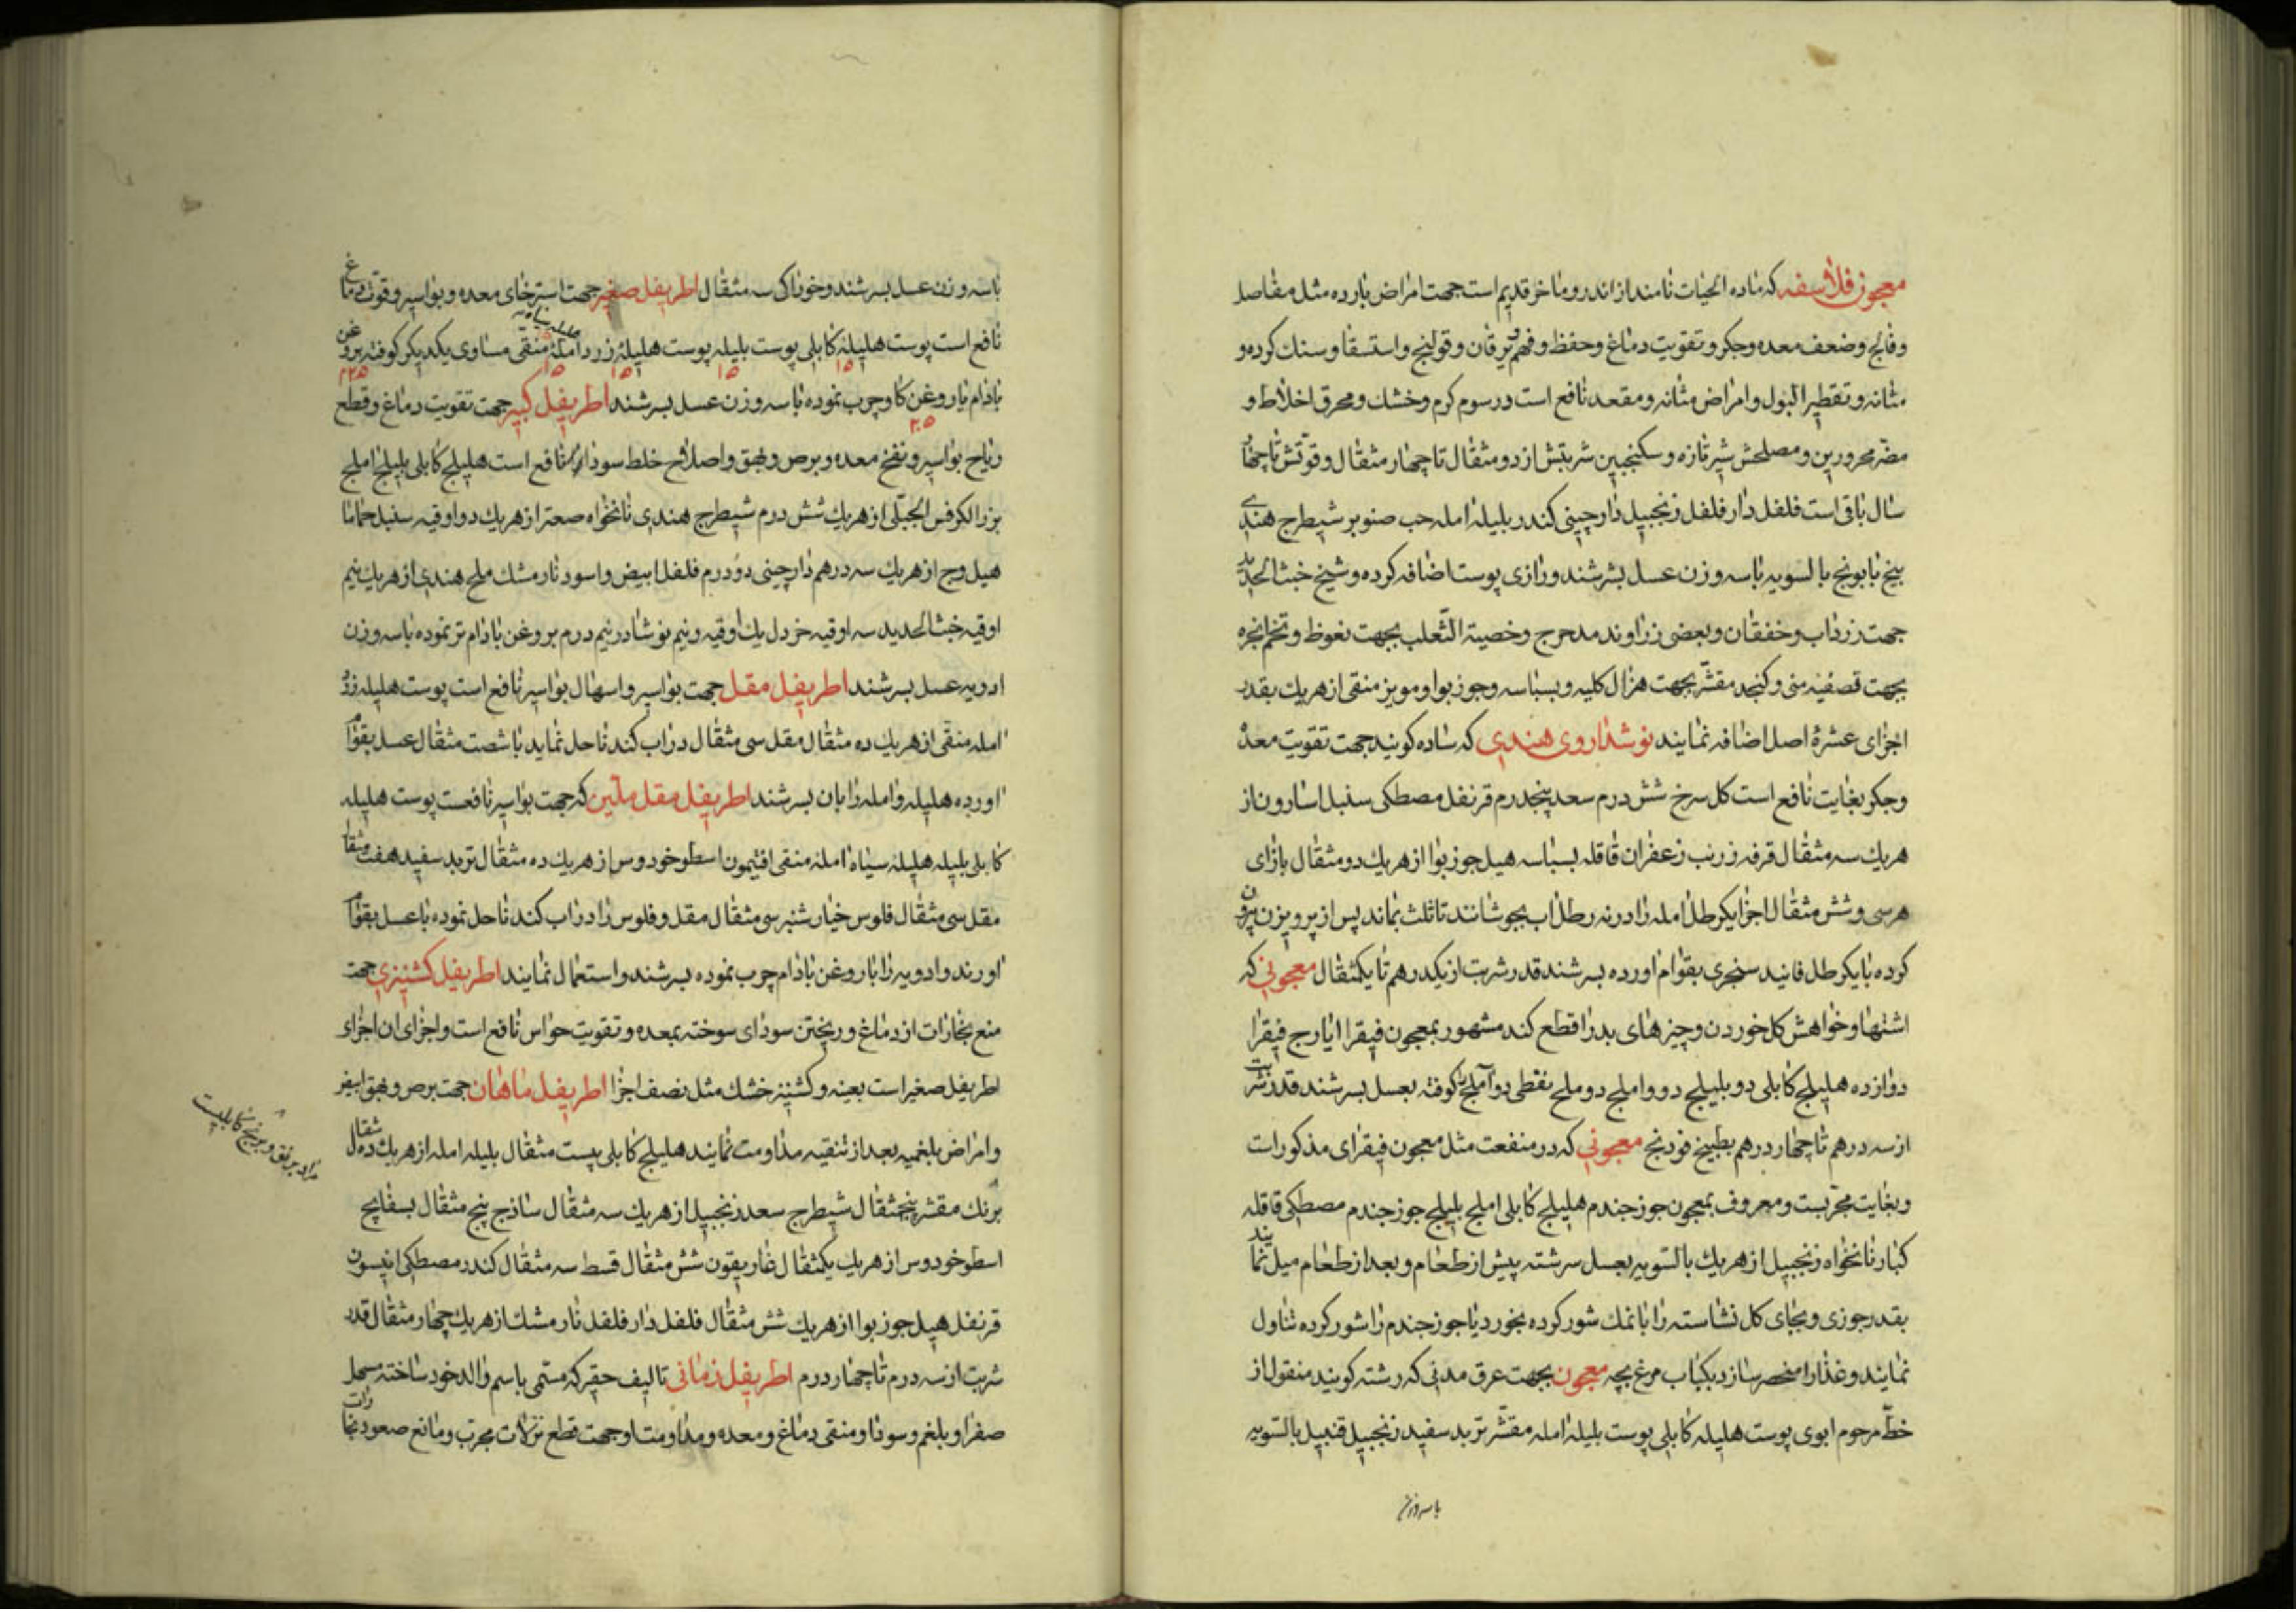 معجون فلاسفه که ماده الحیات نامند از اندروماخر قدیم است جهت امراض بارده مثل مفاصل
و فالج و ضعف معده و جکر و تقویت دماغ و حفظ و فهم و یرقان و قولنج و استسقا و سنک کرده و
مثانه و تقطیر البول و امراض مثانه و مقعد نافع است در سوم کرم و خشک و محرق اخلاط و
مضر محرورین و مصلحش شیر تازه و سکنجبین شربتش از دو مثقال تا چهار مثقال و قوتش تا چهار
سال باقی است فلفل دارفلفل زنجبیل دارچینی کندر بلیله امله حب صنوبر شیطرج هندی
بیخ بابونج بالسویه با سه وزن عسل بسرشند و رازی پوست اضافه کرده و شیخ خبث الحدید
جهت زرداب و خفقان و بعضی زراوند مدحرج و خصیة الثعلب بجهت نعوظ و تخم انجره
بجهت تصفیه منی و کنجد مقشر بجهت هزال کلیه و بسباسه و جوزبوا و مویز منقی از هریک بقدر
اجزای عشرهٔ اصل اضافه نمایند نوشداروی هندی که ساده کویند جهت تقویت معده
و جکر بغایت نافع است کل سرخ شش درم سعد پنجدرم قرنفل مصطکی سنبل اسارون از
هریک سه مثقال قرفه زرنب زعفران قاقله بسباسه هیل جوزبوا از هریک دو مثقال بازای
هر سی و شش مثقال اجزا یکرطل امله را در نه رطل اب بجوشانند تا ثلث بماند پس از پرویزن بیرون
کرده با یکرطل فانید سنجری بقوام اورده بسرشند قدر شربت از یکدرهم تا یکمثقال معجونی که
اشتها و خواهش کل خوردن و چیزهای بد را قطع کند مشهور بمعجون فیقرا ایارج فیقرا
دوازده هلیلج کابلی دو بلیلج دو و املج دو ملح نفطی دو آملج را کوفته بعسل بسرشند قدر شربت
از سه درهم تا چهار درهم بطبیخ فودنج معجونی که در منفعت مثل معجون فیقرای مذکور است
و بغایت مجربست و معروف بمعجون جوز جندم هلیلج کابلی املج بلیلج جوز جندم مصطکی قاقله
کبار نانخواه زنجبیل از هریک بالسویه بعسل سرشته پیش از طعام و بعد از طعام میل نمایند
بقدر جوزی و بجای کل نشاسته را با نمک شور کرده بخورد یا جوز جندم را شور کرده تناول
نمایند و غذا را منحصر سازد بکباب مرغ بچه معجون بجهت عرق مدنی که رشته کویند منقول از
خط مرحوم ابوی پوست هلیله کابلی پوست بلیله امله مقشر تربد سفید زنجبیل قنبیل بالسویه
با سه وزن
با سه وزن عسل بسرشند و خوراکی سه مثقال اطریفل صغیر جهت استرخای معده و بواسیر و قوت دماغ
نافع است پوست هلیلهٔ کابلی پوست بلیله پوست هلیلهٔ زرد املهٔ منقی مساوی یکدیکر کوفته بروغن
هلیله سیاه
۱۵ ۱۵ ۱۵ ۱۵ ۲۲۵
بادام یا روغن کاو چرب نموده با سه وزن عسل بسرشند اطریفل کبیر جهت تقویت دماغ و قطع
۲۰۵
ریاح بواسیر و نفخ معده و برص و بهق و اصلاح خلط سودا نافع است هلیلج کابلی بلیلج املج
بزر الکرفس الجبلی از هریک شش درم شیطرج هندی نانخواه صعتر از هریک دو اوقیه سنبل حماما
هیل وج از هریک سه درهم دارچینی دو درم فلفل ابیض و اسود نارمشک ملح هندی از هریک نیم
اوقیه خبث الحدید سه اوقیه خردل یک اوقیه و نیم نوشادر نیم درم بروغن بادام تر نموده با سه وزن
ادویه عسل بسرشند اطریفل مقل جهت بواسیر و اسهال بواسیر نافع است پوست هلیله زرد
امله منقی از هریک ده مثقال مقل سی مثقال در اب کندنا حل نماید با شصت مثقال عسل بقوام
اورده هلیله و امله را بان بسرشند اطریفل مقل ملین که جهت بواسیر نافعست پوست هلیله
کابلی بلیله هلیلهٔ سیاه املهٔ منقی افتیمون اسطوخودوس از هریک ده مثقال تربد سفید هفت مثقال
مقل سی مثقال فلوس خیارشنبر سی مثقال مقل و فلوس را در اب کندنا حل نموده با عسل بقوام
اورند و ادویه را با روغن بادام چرب نموده بسرشند و استعمال نمایند اطریفل کشنیزی جهت
منع بخارات از دماغ و ریختن سودای سوخته بمعده و تقویت حواس نافع است و اجزای ان اجزای
اطریفل صغیر است بعینه و کشنیز خشک مثل نصف اجزا اطریفل ماهان جهت برص و بهق ابیض
و امراض بلغمیه بعد از تنقیه مداومت نمایند هلیلج کابلی بیست مثقال بلیله امله از هریک ده مثقال
برنک مقشر پنجمثقال شیطرج سعد زنجبیل از هریک سه مثقال ساذج پنج مثقال بسفایج
اسطوخودوس از هریک یکمثقال غاریقون شش مثقال قسط سه مثقال کندر مصطکی انیسون
قرنفل هیل جوزبوا از هریک شش مثقال فلفل دارفلفل نارمشک از هریک چهار مثقال قدر
شربت از سه درم تا چهار درم اطریفل زمانی تالیف حقیر که مسمی باسم والد خود ساخته مسهل
صفرا و بلغم و سودا و منقی دماغ و معده و مداومت او جهت قطع نزلات مجرب و مانع صعود بخارات